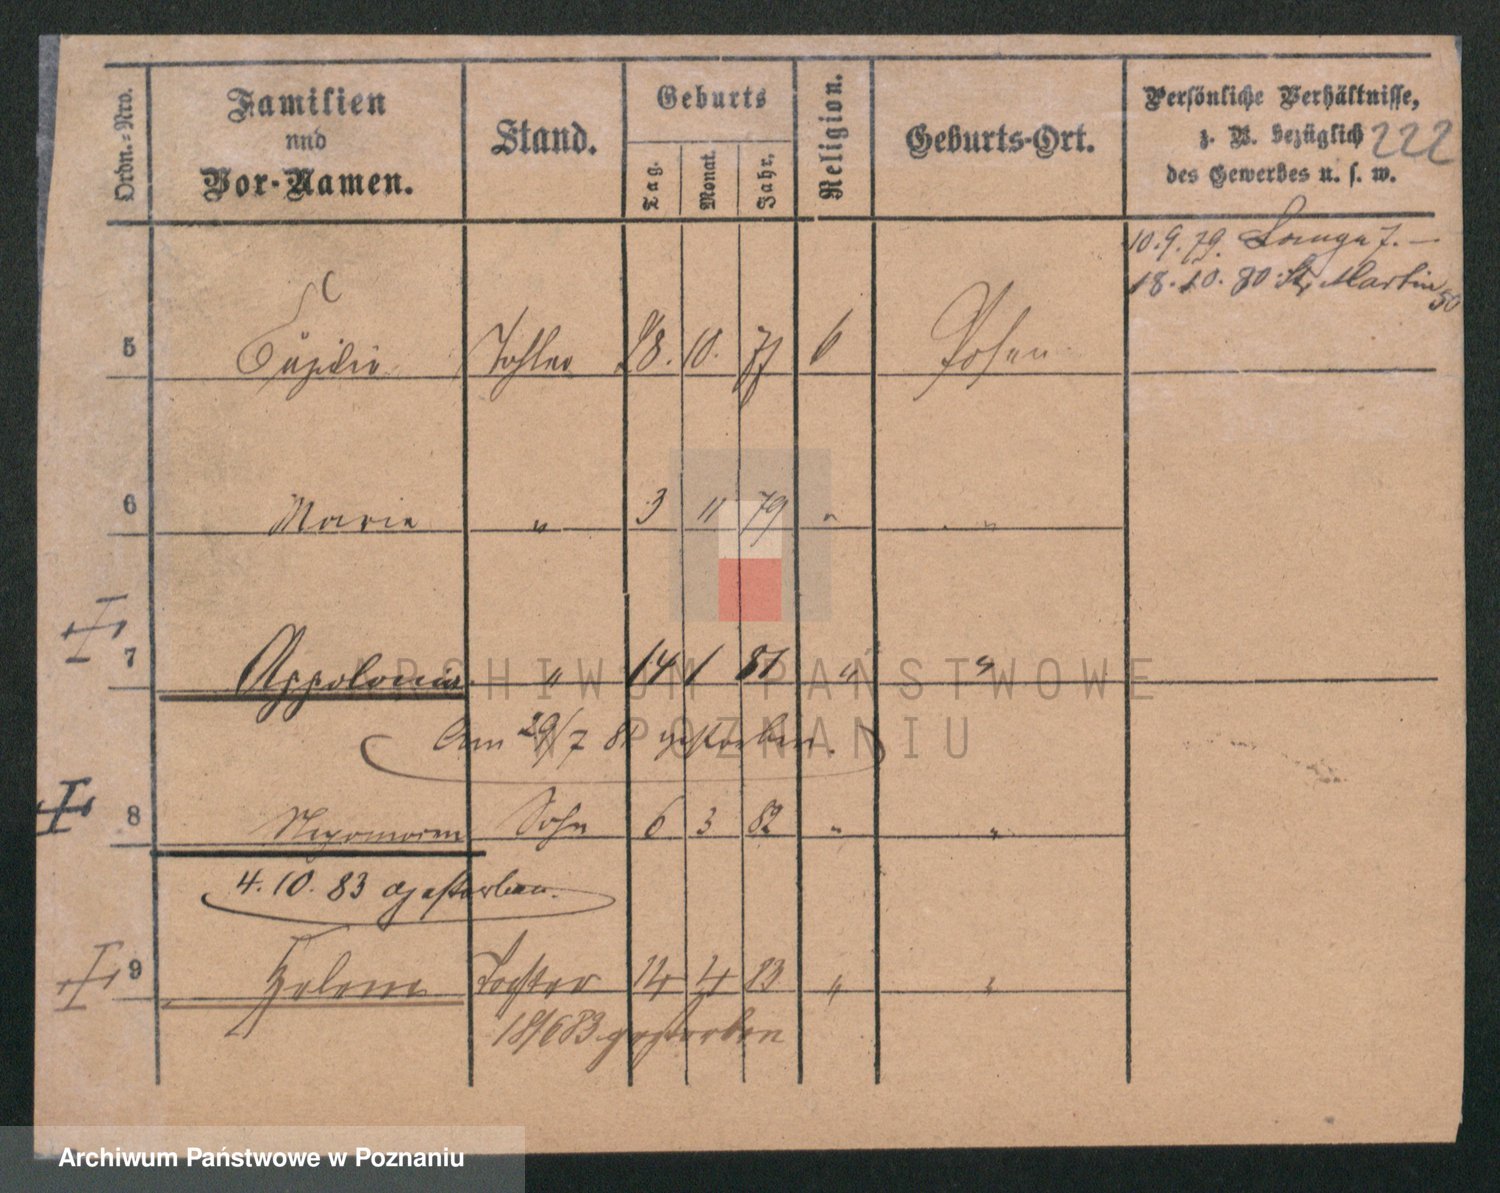 Ordn.-Nro.
Familien
und
Vor-Namen.
Stand.
Geburts
Tag.
Monat.
Jahr.
Religion.
Geburts-Ort.
Persönliche Verhältnisse,
z. B. bezüglich
des Gewerbes u. s. w.
222
10.9.79. Lange 7. —
18.10.80 St. Martin 50
5 Cäzilie Tochter 28. 10. 77 6 Posen
6 Marie " 3 11 79 " "
7 Appolonia " 14 1 81 " "
Am 29/7 81 gestorben.
8 Sohn 6 3 82 " "
4. 10. 83 gestorben.
9 Helena Tochter 14 4 83 " "
18/6 83 gestorben
ARCHIWUM PAŃSTWOWE
W POZNANIU
Archiwum Państwowe w Poznaniu